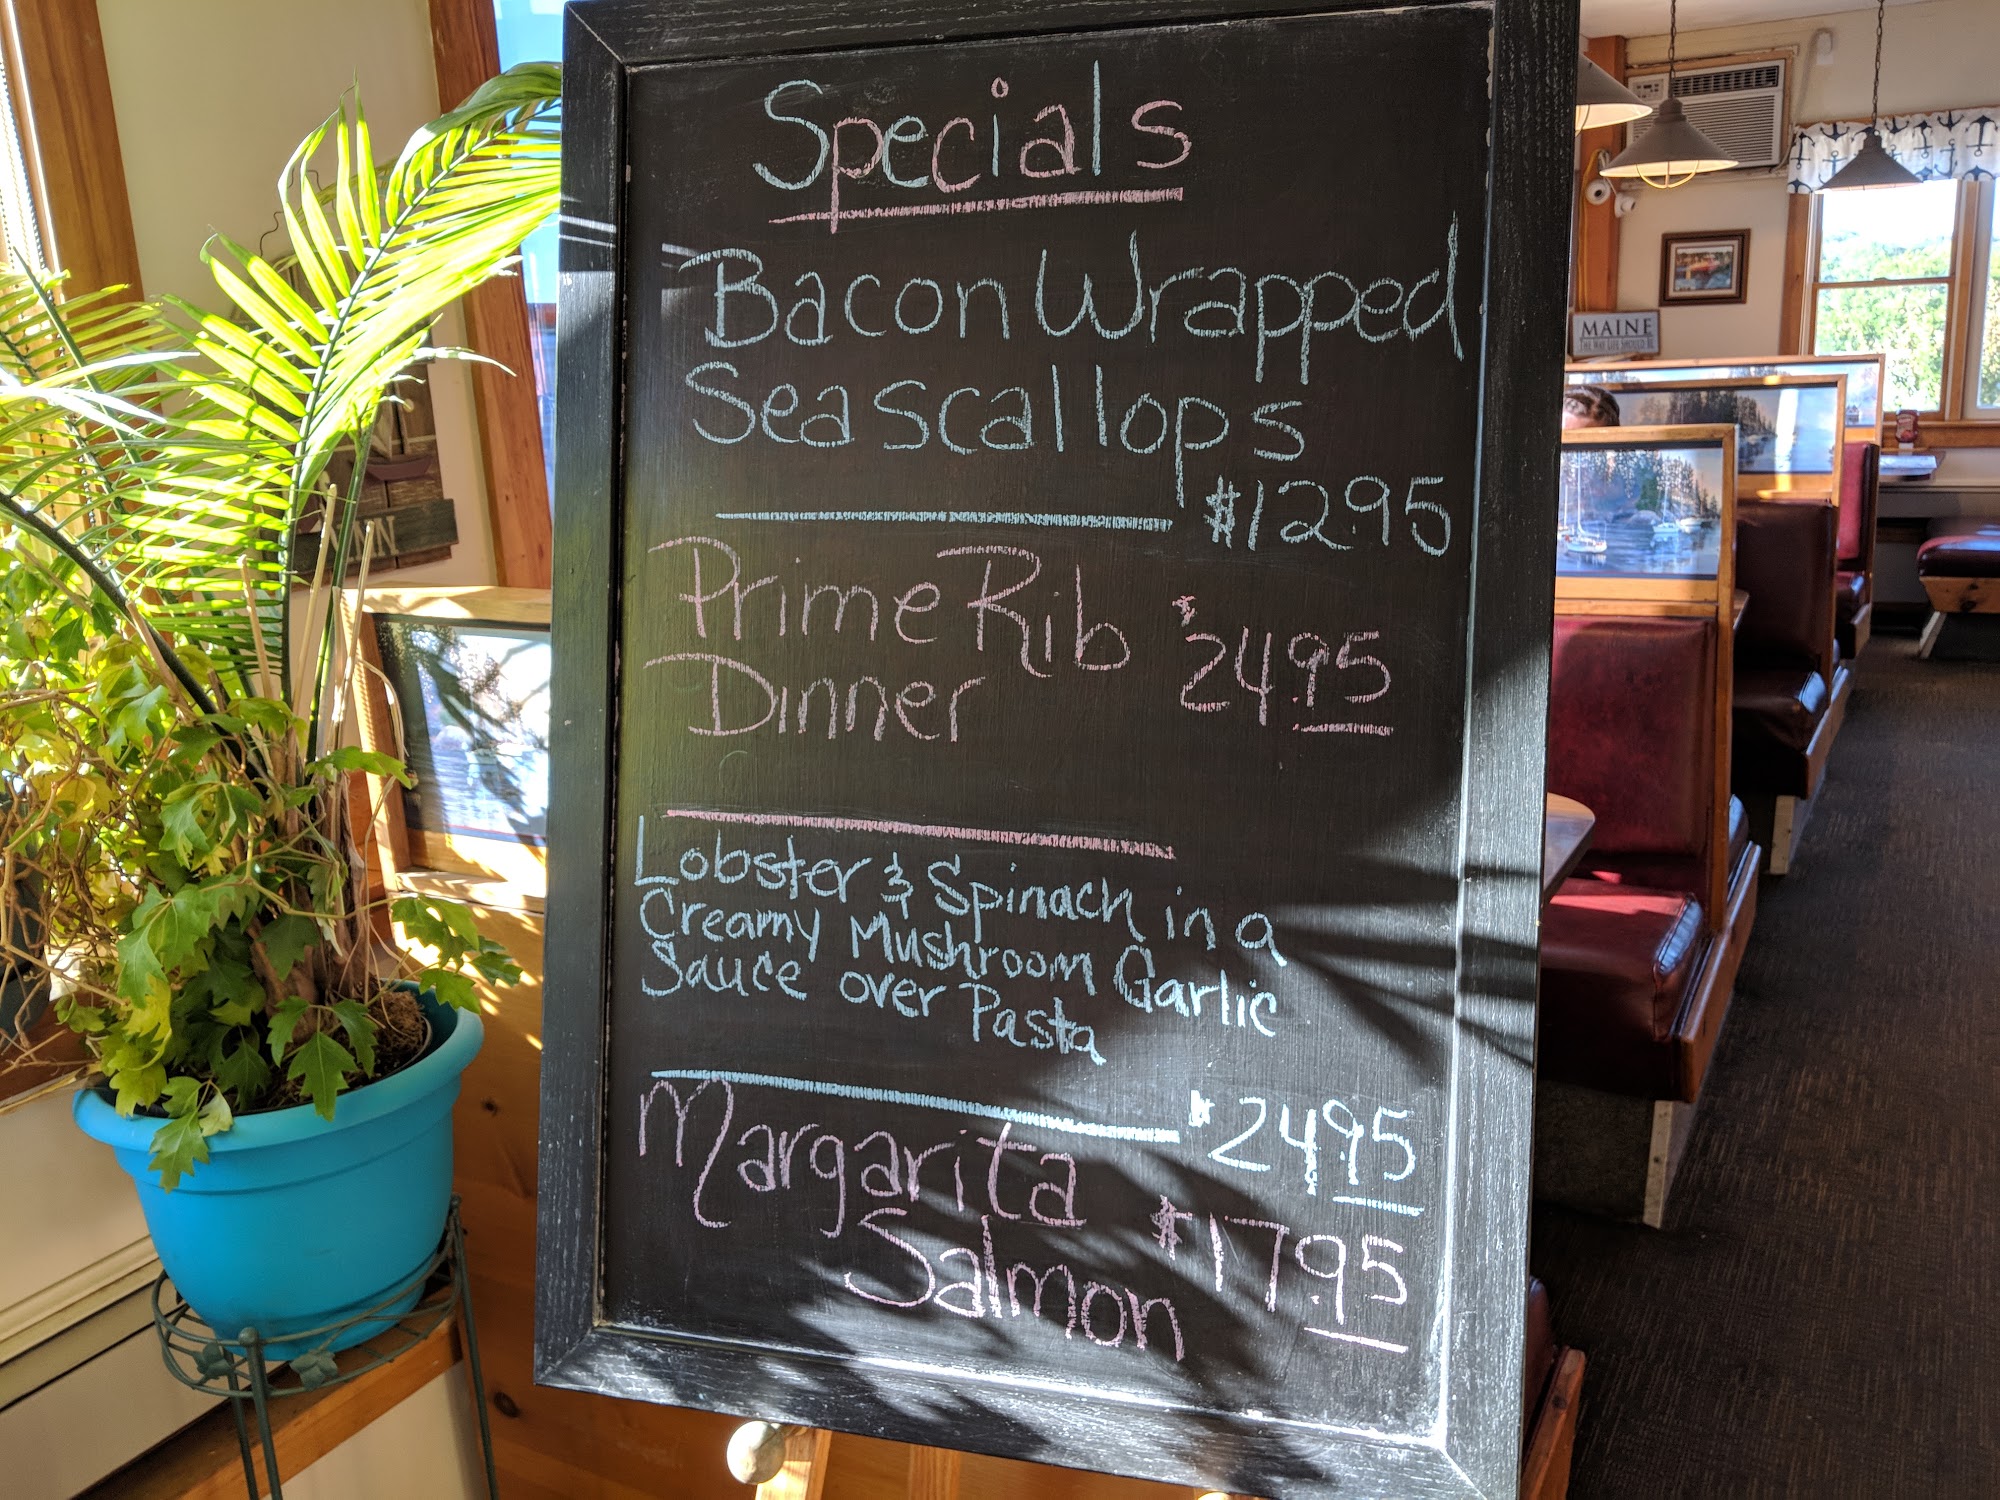 Specials
Bacon Wrapped
Sea scallops
$12.95
Prime Rib $24.95
Dinner
Lobster & Spinach in a
Creamy Mushroom Garlic
Sauce over Pasta
$24.95
Margarita
Salmon $17.95
MAINE
THE WAY LIFE SHOULD BE